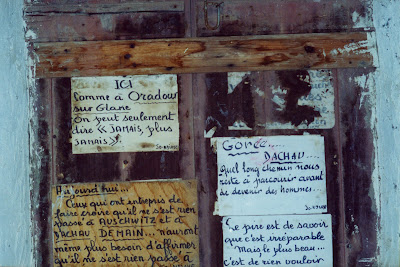 ICI
Comme à Oradour
sur Glane
On peut seulement
dire << JAMAIS, plus
JAMAIS>>.
Gorée.....
DACHAU....
Quel long chemin nous
reste à parcourir avant
de devenir des hommes..
Aujourd'hui...
Ceux qui ont entrepris de
faire croire qu'il ne s'est rien
passé à AUSCHWITZ et à
DACHAU DEMAIN... n'auront
même plus besoin d'affirmer
qu'il ne s'est rien passé à
Le pire est de savoir
que c'est irréparable
Mais le plus beau...
c'est de rien vouloir